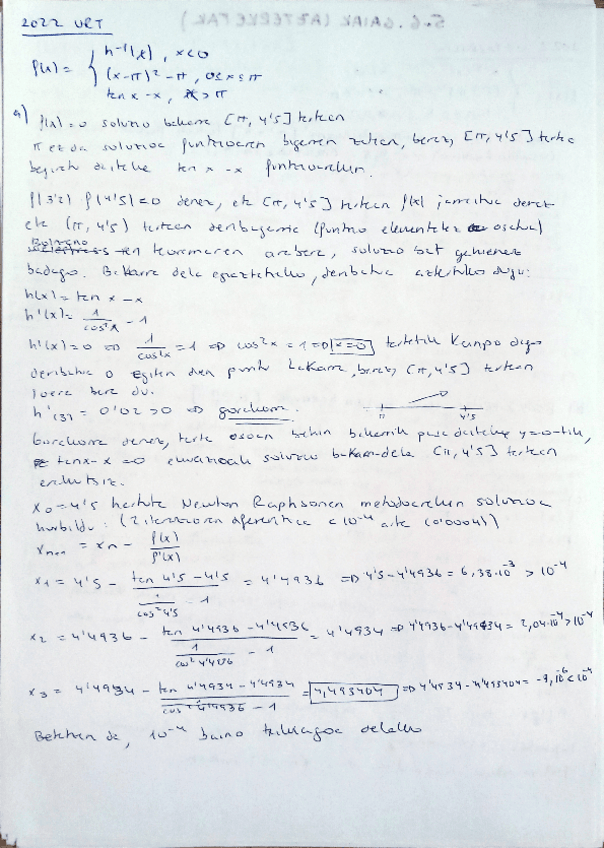 2022 URT
f(x) = { h⁻¹(x), x<0
(x-π)² - π, 0≤x≤π
tan x - x, x>π
a) f(x)=0 soluzio bakarra [π, 4'5] tartean
π ez da soluzioa funtzioaren bigarren zatian, beraz, [π, 4'5] tartea
begiratu daiteke tan x - x funtzioarekin.
f(3'2) f(4'5) <0 denez, eta [π, 4'5] tartean f(x) jarraitua denez
eta (π, 4'5) tartean deribagarria (funtzio elementalez osatua)
Bolzano-ren teoremaren arabera, soluzio bat gehienez
badago. Bakarra dela egiaztatzeko, deribatua aztertuko dugu:
h(x) = tan x - x
h'(x) = 1/cos²x - 1
h'(x) = 0 => 1/cos²x = 1 => cos²x = 1 => x=0 tartetik kanpo dago
deribatua 0 egiten duen puntu bakarra, beraz, [π, 4'5] tartean
bera du.
h'(3) = 0'02 > 0 => gorakorra. π 4'5
Gorakorra denez, tarte osoan behin bakarrik pasa daiteke y=0-tik,
tan x - x = 0 ekuazioak soluzio bakarra dela [π, 4'5] tartean
x₀ = 4'5 hartuta Newton Raphsonen metodoarekin soluzioa
hurbildu: (2 iterazioren diferentzia < 10⁻⁴ arte (0'0001))
xₙ₊₁ = xₙ - f(x)/f'(x)
x₁ = 4'5 - (tan 4'5 - 4'5)/(1/cos²4'5 - 1) = 4'4936 => 4'5 - 4'4936 = 6,38·10⁻³ > 10⁻⁴
x₂ = 4'4936 - (tan 4'4936 - 4'4936)/(1/cos²4'4936 - 1) = 4'4934 => 4'4936 - 4'4934 = 2,04·10⁻⁴ > 10⁻⁴
x₃ = 4'4934 - (tan 4'4934 - 4'4934)/(cos²4'4936 - 1) = 4,493404 => 4'4934 - 4'493404 = 10⁻⁶ < 10⁻⁴
Betetzen da, 10⁻⁴ baino txikiagoa delako